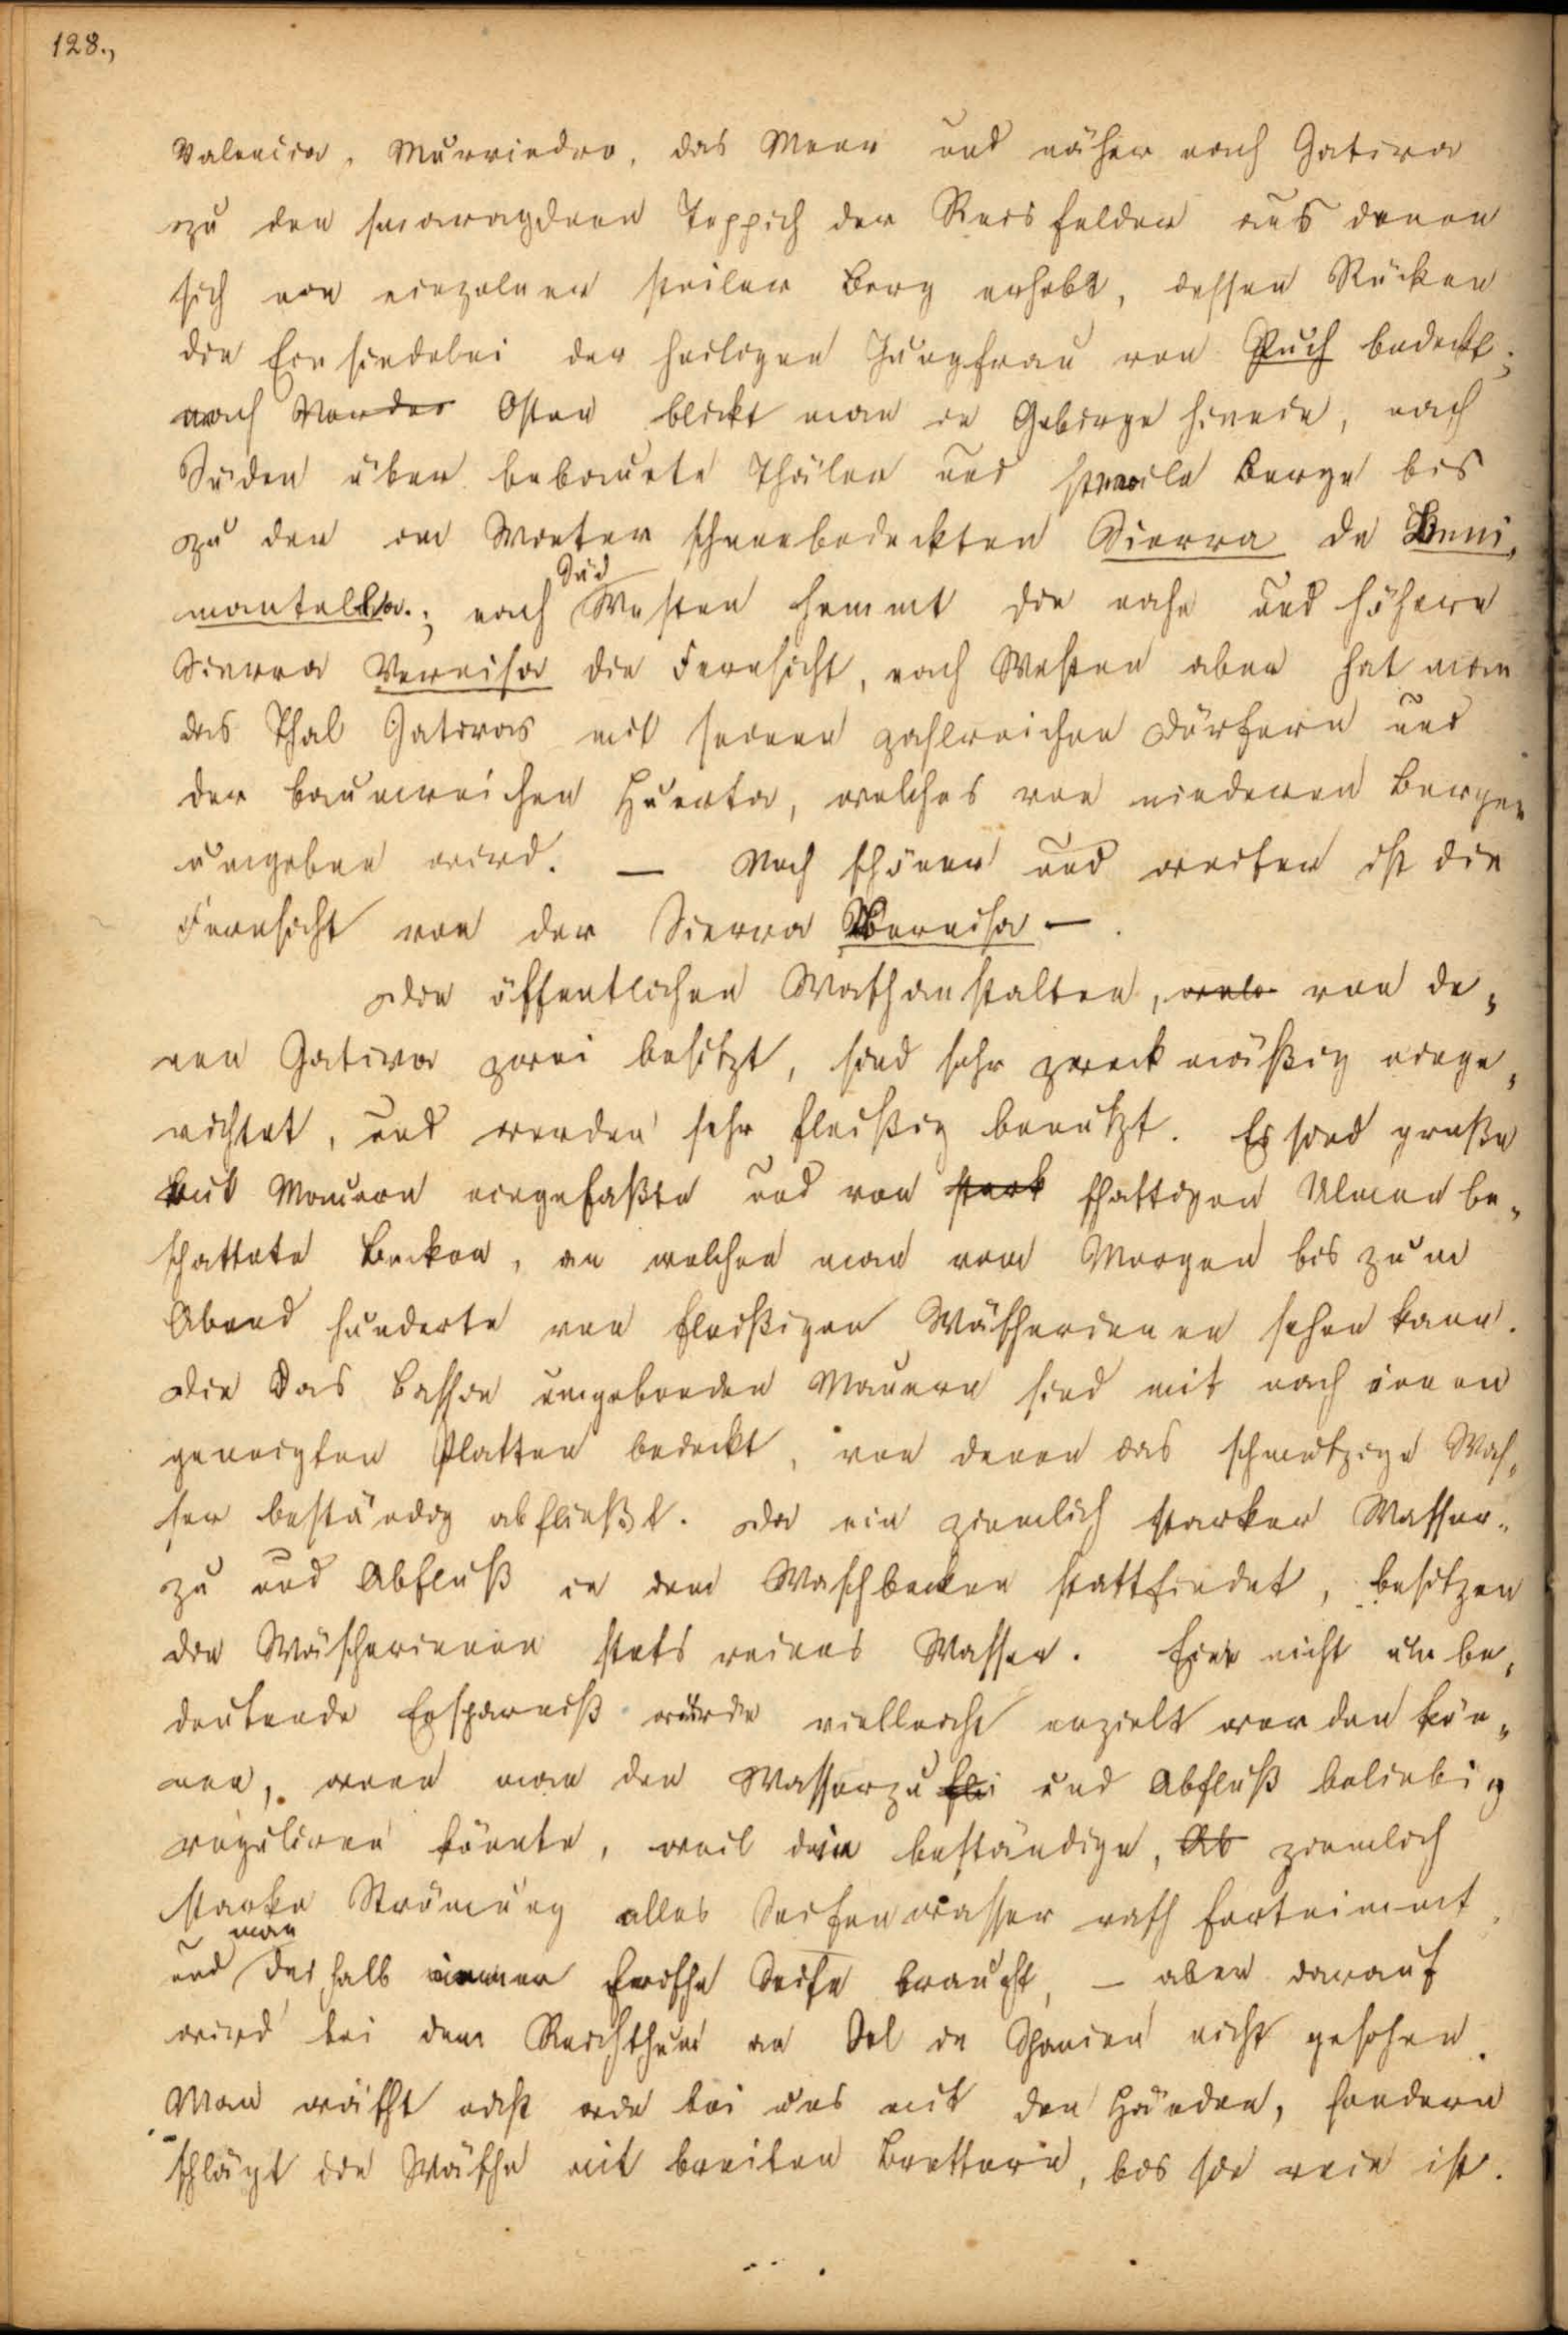 128.,
Valencia, Murviedro, das Meer und näher nach Gativa
zu den smaragdnen Teppich der Reisfelder aus denen
sich ein einzelner steiler Berg erhebt, dessen Rücken
die Einsiedelei der heiligen Jungfrau von Puch bedeckt;
nach Norden Osten blickt man in Gebirge hinein, nach
Süden über bebauete Thäler und steile Berge bis
zu der im Winter schneebedeckten Sierra de Beni,
mantella.; nach Süd Westen hemmt die nahe und höhere
Sierra Vernisa die Fernsicht, nach Westen aber hat man
das Thal Gativas mit seinen zahlreichen Dörfern und
der baumreichen Huerta, welches von niederen Bergen
umgeben wird. — Noch schöner und weiter ist die
Fernsicht von der Sierra Bernisa —.
Die öffentlichen Waschanstalten, welc von de,
nen Gativa zwei besitzt, sind sehr zweckmäßig einge,
richtet, und werden sehr fleißig benutzt. Es sind große
mit Mauern eingefaßte und von stark schattigen Ulmen be,
schattete Becken, an welchen man vom Morgen bis zum
Abend hunderte von fleißigen Wäscherinnen sehen kann.
Die das Bassin umgebenden Mauern sind mit nach innen
geneigten Platten bedeckt, von denen das schmutzige Was,
ser beständig abfließt. Da ein ziemlich starker Wasser,
zu und Abfluß in dem Waschbecken stattfindet, besitzen
die Wäscherinnen stets reines Wasser. Eine nicht unbe,
deutende Ersparniß würde vielleicht erzielt werden kön,
nen, wenn man den Wasserzu fli und Abfluß beliebig
reguliren könnte, weil die beständige, Ab ziemlich
starke Strömung alles Seifenwasser rasch fortnimmt,
und man deshalb immer frische Seife braucht, — aber darauf
wird bei dem Reichthum an Oel in Spanien nicht gesehen.
Man wäscht nicht wie bei uns mit den Händen, sondern
schlägt die Wäsche mit breiten Brettern, bis sie rein ist.